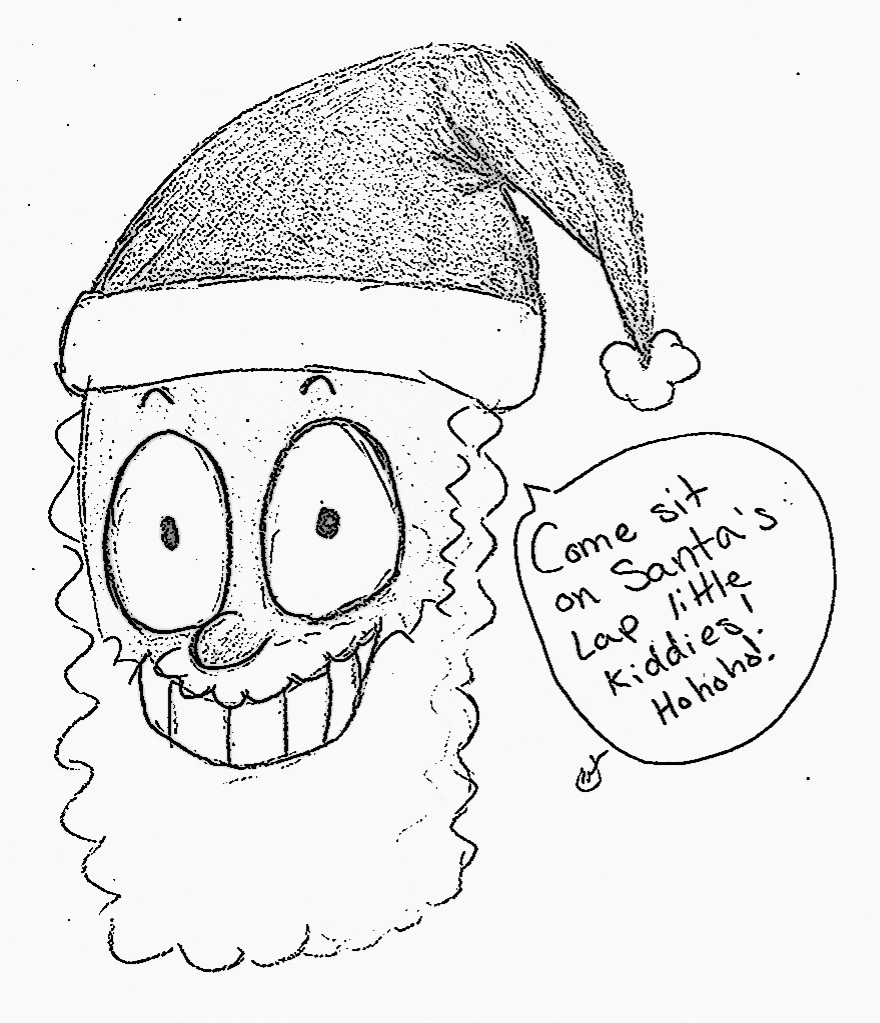 Come sit
on Santa's
Lap little
kiddies!
Hohoho!